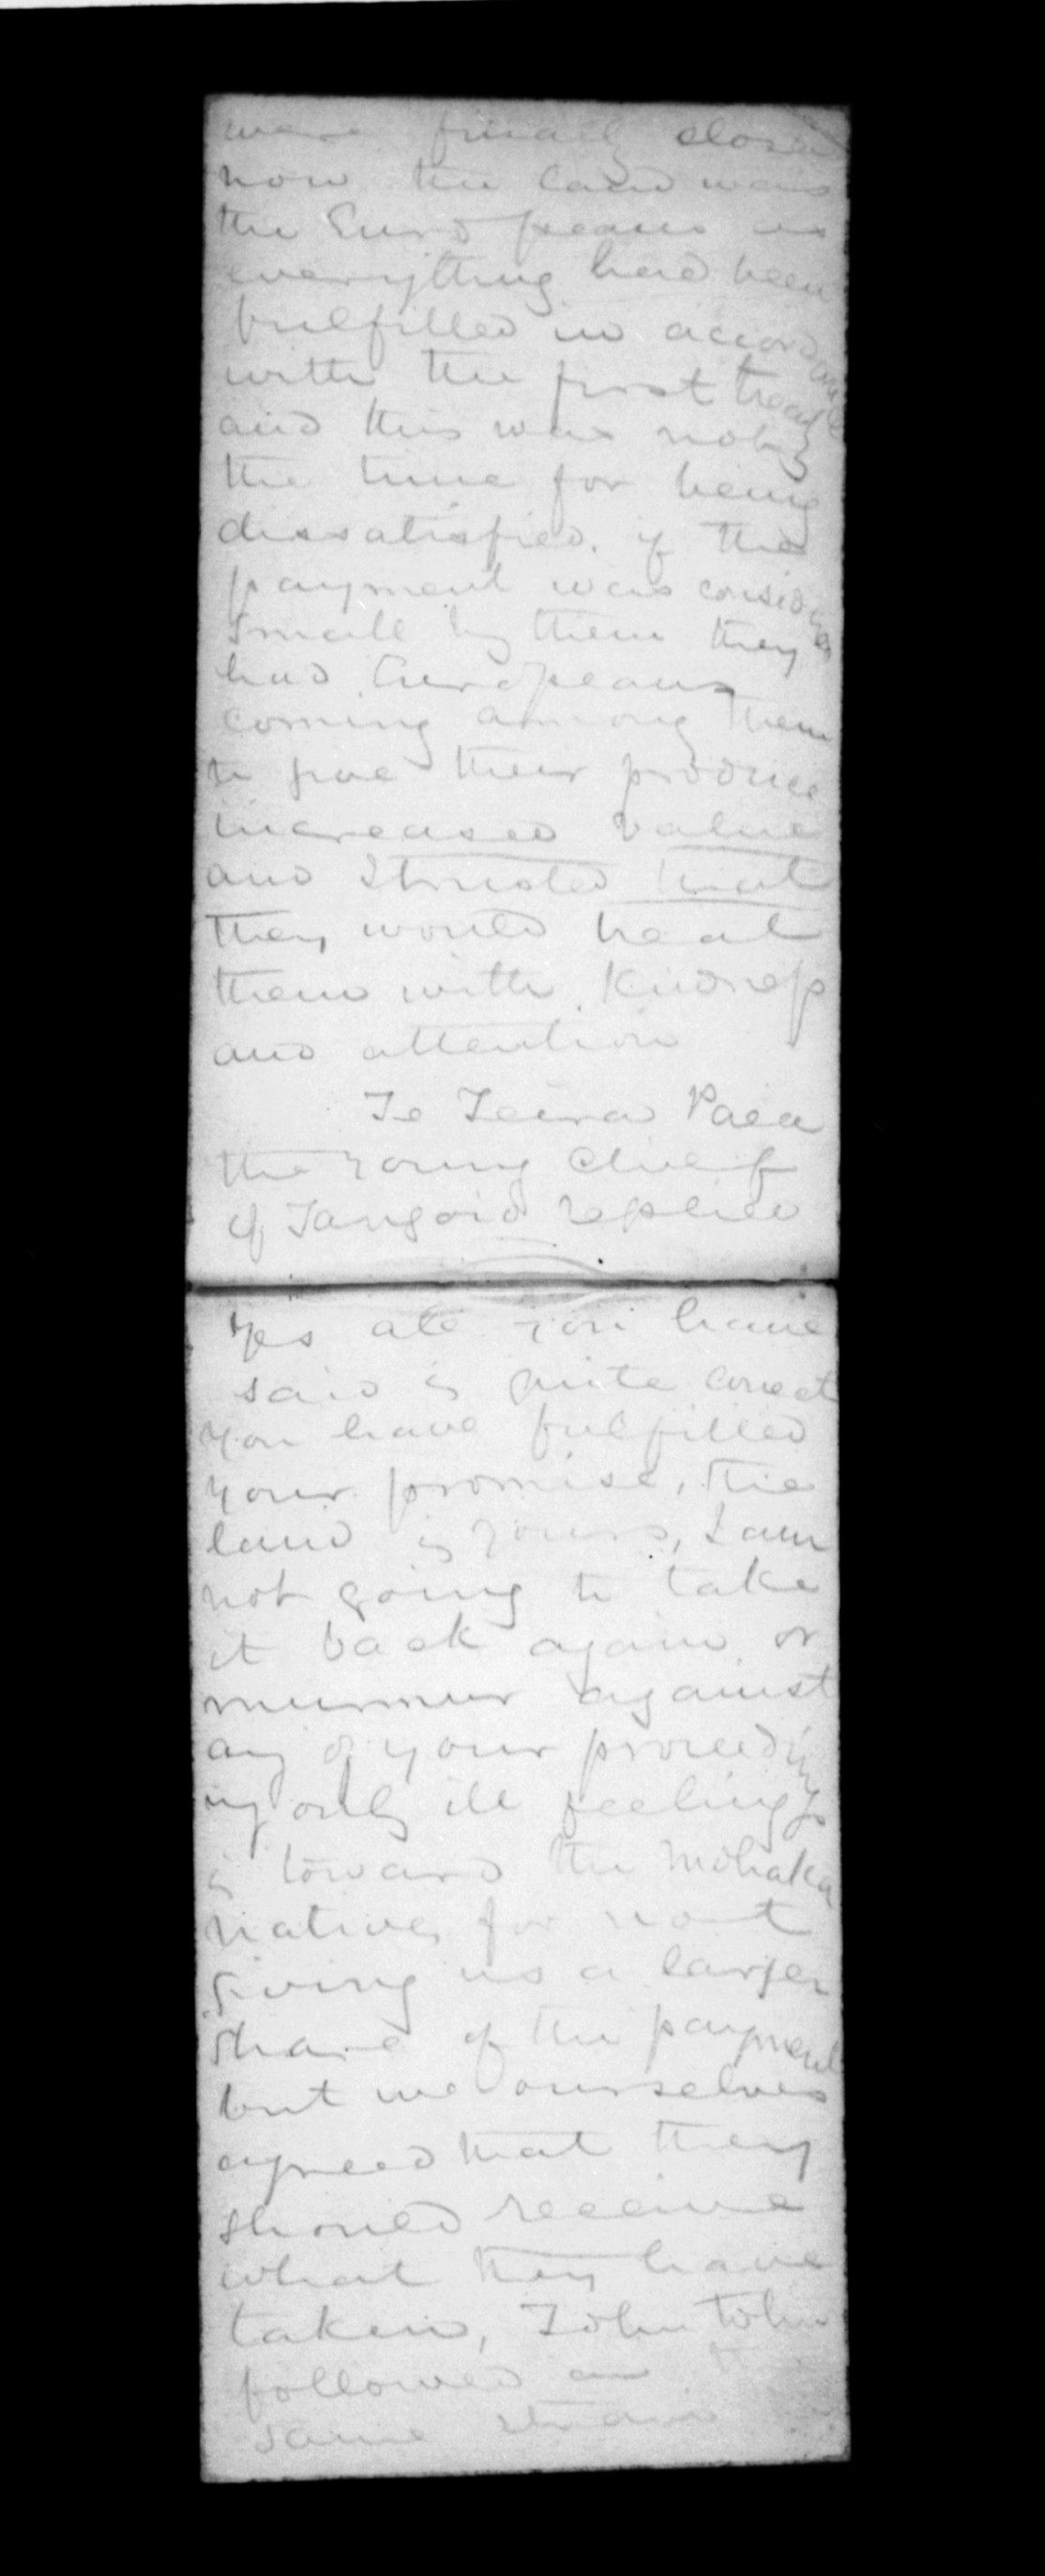 were finally closed
now the land was
the Europeans as
everything had been
fulfilled in accordance
with the first treaty
and this was not
the time for being
dissatisfied. if the
payment was considered
small by them they
had Europeans
coming among them
to give their produce
increased value
and I trusted that
they would treat
them with kindness
and attention
Te Teira Paea
the young Chief
of Tangoio replied
Yes all you have
said is quite correct
you have fulfilled
your promise, the
land is yours, I am
not going to take
it back again or
murmur against
any of your proceedings
my only ill feelings
is toward the Mohaka
natives for not
giving us a larger
share of the payment
but we ourselves
agreed that they
should receive
what they have
taken, Tohu tohu
followed in the
same strain